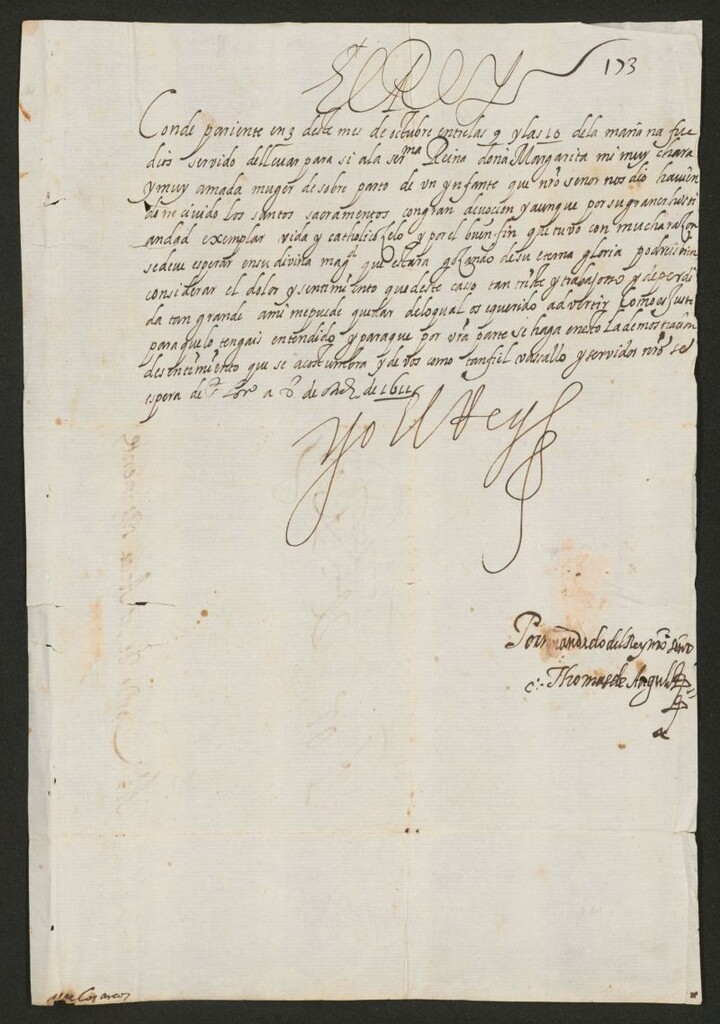 El Rey
173
Conde pariente en 3 deste mes de octubre entre las 9 y las 10 dela mañana fue
dios servido de llevar para si a la serma Reina doña Margarita mi muy chara
y muy amada muger de sobre parto de un ynfante que nro señor nos dio havien
do recivido los santos sacramentos con gran devocion y aunque por su gran christi
andad exemplar vida y catholico zelo y por el buen fin que tuvo con mucha razon
se deve esperar en su divina magd que estara gozando de su eterna gloria podreis bien
considerar el dolor y sentimiento que deste caso tan triste y trabajoso y de perdi
da tan grande a mi me puede quedar de lo qual os e querido advertir como es justo
para que lo tengais entendido y para que por vra parte se haga en esto la demostracion
de sentimiento que se acostumbra y de vos como tan fiel vasallo y servidor nro se
espera de a de de 1611
yo el Rey
Por mandado del Rey nro señor
Thomas de Angulo